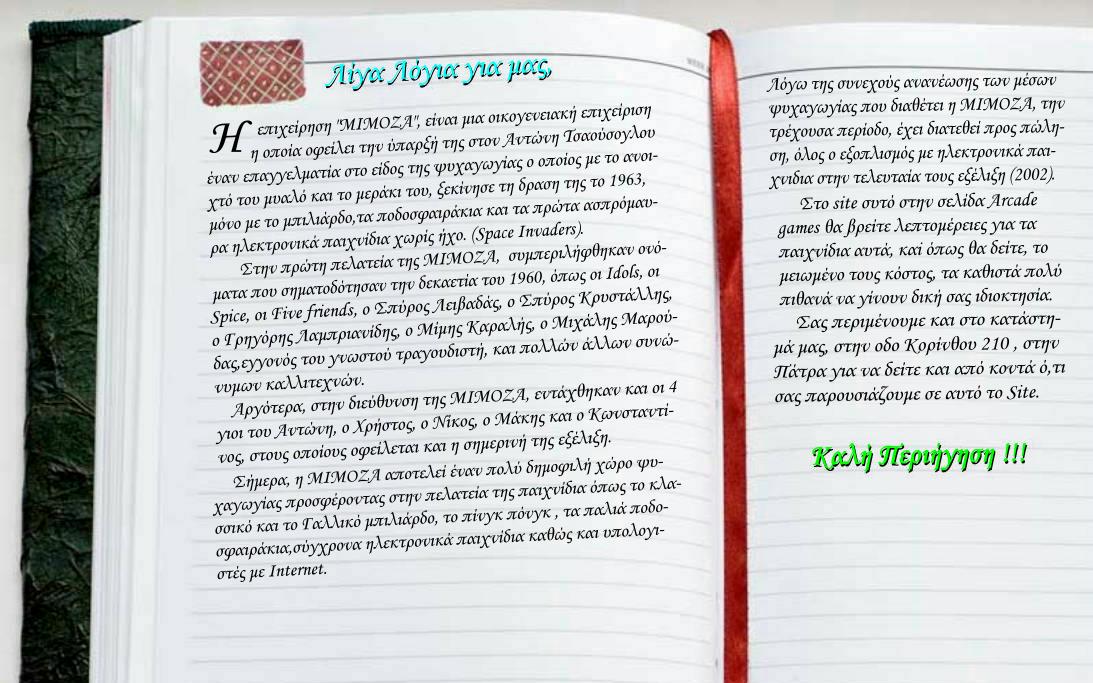 Λίγα Λόγια για μας,
Η επιχείρηση "ΜΙΜΟΖΑ", είναι μια οικογενειακή επιχείριση
η οποία οφείλει την ύπαρξή της στον Αντώνη Τσαούσογλου
έναν επαγγελματία στο είδος της ψυχαγωγίας ο οποίος με το ανοι-
χτό του μυαλό και το μεράκι του, ξεκίνησε τη δραση της το 1963,
μόνο με το μπιλιάρδο,τα ποδοσφαιράκια και τα πρώτα ασπρόμαυ-
ρα ηλεκτρονικά παιχνίδια χωρίς ήχο. (Space Invaders).
Στην πρώτη πελατεία της ΜΙΜΟΖΑ, συμπεριλήφθηκαν ονό-
ματα που σηματοδότησαν την δεκαετία του 1960, όπως οι Idols, οι
Spice, οι Five friends, ο Σπύρος Λειβαδάς, ο Σπύρος Κρυστάλλης,
ο Γρηγόρης Λαμπριανίδης, ο Μίμης Καραλής, ο Μιχάλης Μαρού-
δας,εγγονός του γνωστού τραγουδιστή, και πολλών άλλων συνώ-
νυμων καλλιτεχνών.
Αργότερα, στην διεύθυνση της ΜΙΜΟΖΑ, εντάχθηκαν και οι 4
γιοι του Αντώνη, ο Χρήστος, ο Νίκος, ο Μάκης και ο Κωνσταντί-
νος, στους οποίους οφείλεται και η σημερινή της εξέλιξη.
Σήμερα, η ΜΙΜΟΖΑ αποτελεί έναν πολύ δημοφιλή χώρο ψυ-
χαγωγίας προσφέροντας στην πελατεία της παιχνίδια όπως το κλα-
σσικό και το Γαλλικό μπιλιάρδο, το πίνγκ πόνγκ , τα παλιά ποδο-
σφαιράκια,σύγχρονα ηλεκτρονικά παιχνίδια καθώς και υπολογι-
στές με Internet.
Λόγω της συνεχούς ανανέωσης των μέσων
ψυχαγωγίας που διαθέτει η ΜΙΜΟΖΑ, την
τρέχουσα περίοδο, έχει διατεθεί προς πώλη-
ση, όλος ο εξοπλισμός με ηλεκτρονικά παι-
χνιδια στην τελευταία τους εξέλιξη (2002).
Στο site συτό στην σελίδα Arcade
games θα βρείτε λεπτομέρειες για τα
παιχνίδια αυτά, καί όπως θα δείτε, το
μειωμένο τους κόστος, τα καθιστά πολύ
πιθανά να γίνουν δική σας ιδιοκτησία.
Σας περιμένουμε και στο κατάστη-
μά μας, στην οδο Κορίνθου 210 , στην
Πάτρα για να δείτε και από κοντά ό,τι
σας παρουσιάζουμε σε αυτό το Site.
Καλή Περιήγηση !!!